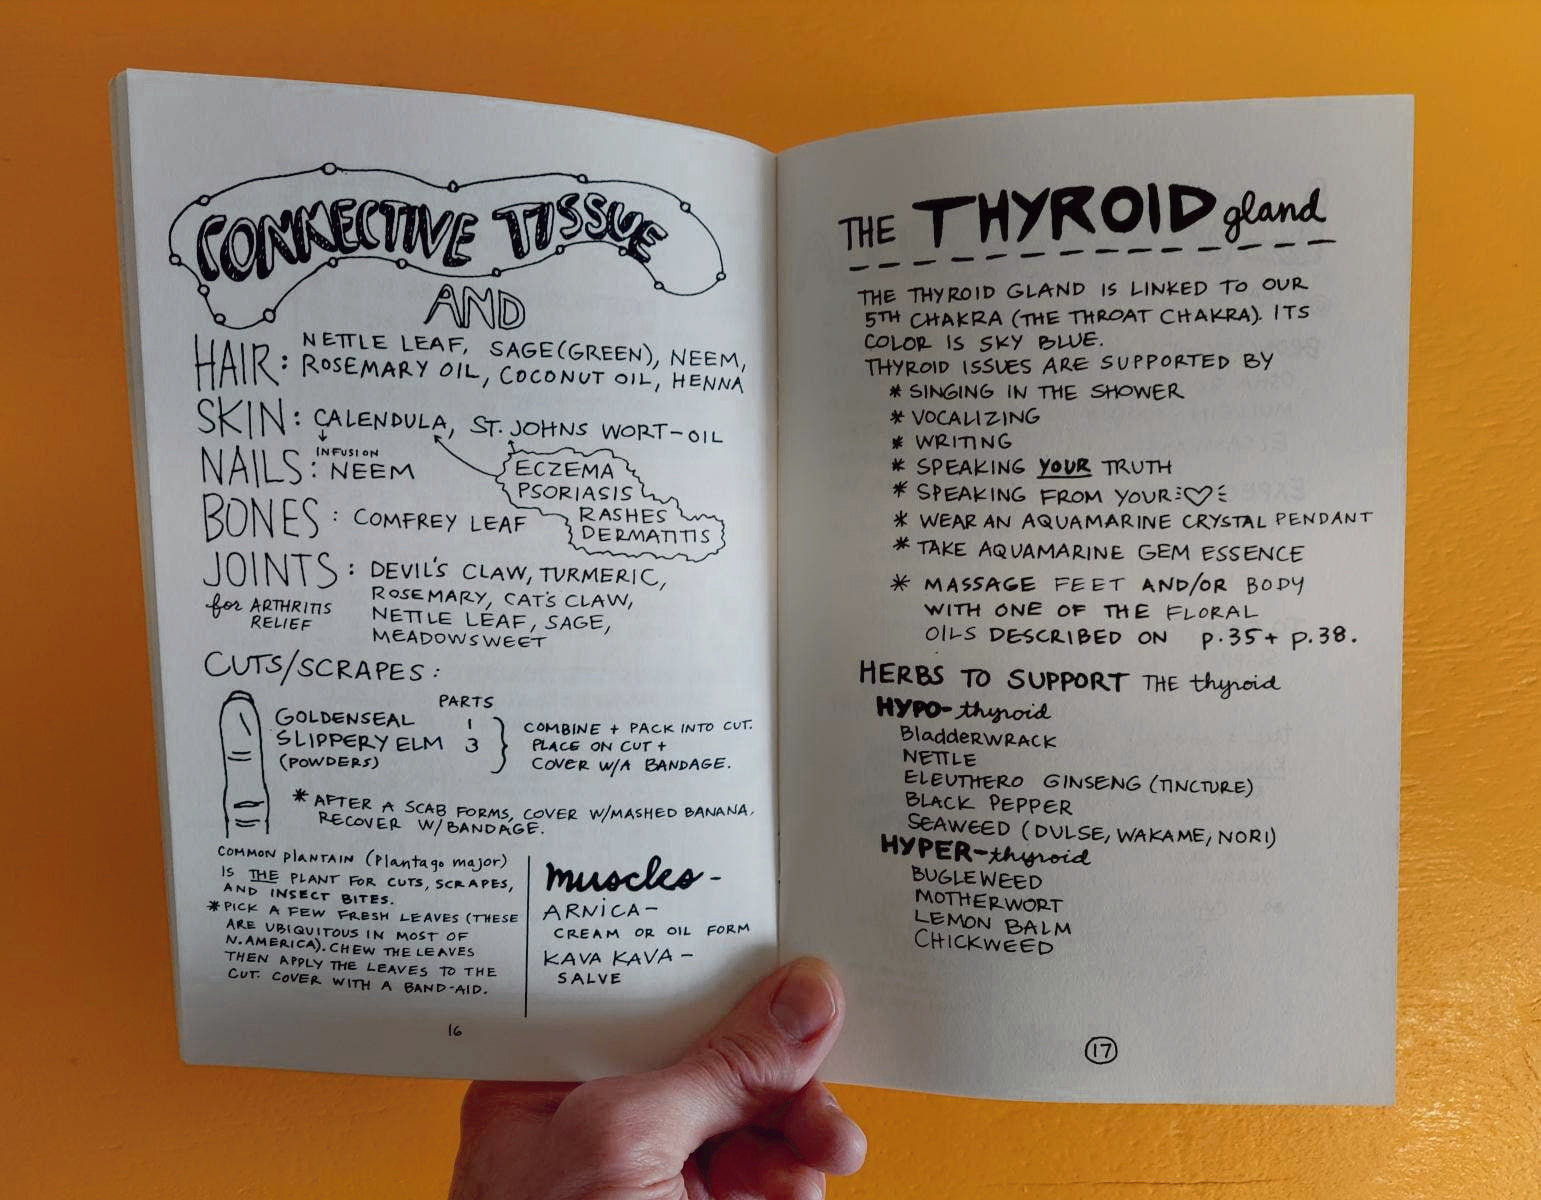 CONNECTIVE TISSUE
AND
HAIR: NETTLE LEAF, SAGE(GREEN), NEEM,
ROSEMARY OIL, COCONUT OIL, HENNA
SKIN: CALENDULA, ST. JOHNS WORT-OIL
INFUSION
NAILS: NEEM
ECZEMA
PSORIASIS
RASHES
DERMATITIS
BONES: COMFREY LEAF
JOINTS: DEVIL'S CLAW, TURMERIC,
for ARTHRITIS
RELIEF
ROSEMARY, CAT'S CLAW,
NETTLE LEAF, SAGE,
MEADOWSWEET
CUTS/SCRAPES:
PARTS
GOLDENSEAL 1
SLIPPERY ELM 3
(POWDERS)
COMBINE + PACK INTO CUT.
PLACE ON CUT +
COVER W/A BANDAGE.
* AFTER A SCAB FORMS, COVER W/MASHED BANANA.
RECOVER W/BANDAGE.
COMMON PLANTAIN (Plantago major)
IS THE PLANT FOR CUTS, SCRAPES,
AND INSECT BITES.
* PICK A FEW FRESH LEAVES (THESE
ARE UBIQUITOUS IN MOST OF
N.AMERICA). CHEW THE LEAVES
THEN APPLY THE LEAVES TO THE
CUT. COVER WITH A BAND-AID.
muscles-
ARNICA-
CREAM OR OIL FORM
KAVA KAVA-
SALVE
16
THE THYROID gland
THE THYROID GLAND IS LINKED TO OUR
5TH CHAKRA (THE THROAT CHAKRA). ITS
COLOR IS SKY BLUE.
THYROID ISSUES ARE SUPPORTED BY
* SINGING IN THE SHOWER
* VOCALIZING
* WRITING
* SPEAKING YOUR TRUTH
* SPEAKING FROM YOUR ♡
* WEAR AN AQUAMARINE CRYSTAL PENDANT
* TAKE AQUAMARINE GEM ESSENCE
* MASSAGE FEET AND/OR BODY
WITH ONE OF THE FLORAL
OILS DESCRIBED ON p.35+ p.38.
HERBS TO SUPPORT THE thyroid
HYPO-thyroid
BladdERWRACK
NETTLE
ELEUTHERO GINSENG (TINCTURE)
BLACK PEPPER
SEAWEED (DULSE, WAKAME, NORI)
HYPER-thyroid
BUGLEWEED
MOTHERWORT
LEMON BALM
CHICKWEED
17